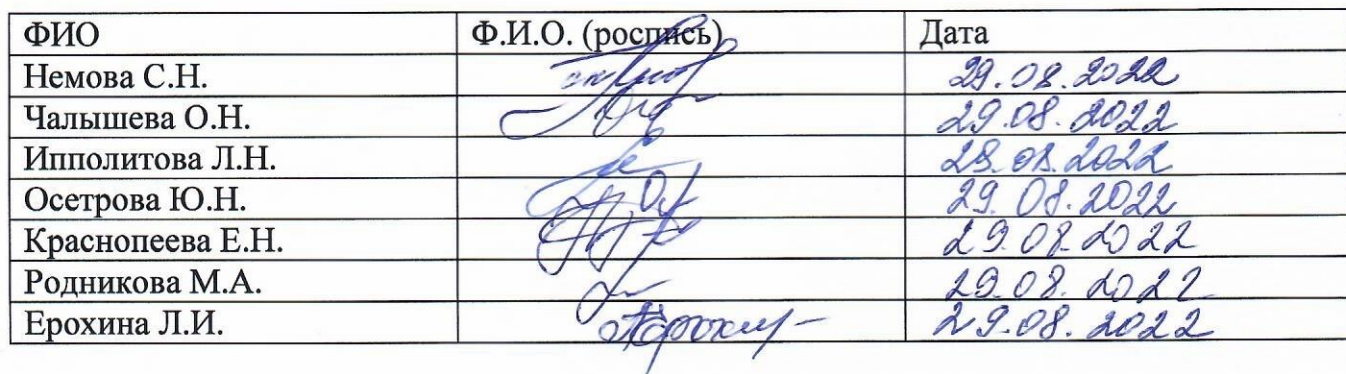 ФИО Ф.И.О. (роспись) Дата
Немова С.Н. 29.08.2022
Чалышева О.Н. 29.08.2022
Ипполитова Л.Н. 29.08.2022
Осетрова Ю.Н. 29.08.2022
Краснопеева Е.Н. 29.08.2022
Родникова М.А. 29.08.2022
Ерохина Л.И. 29.08.2022